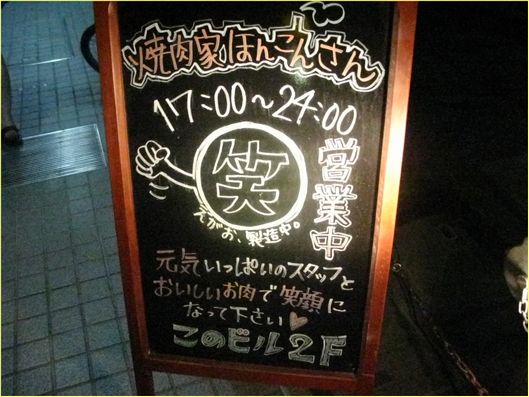 焼肉家ほんこんさん
17:00～24:00
笑
営業中
えがお、製造中。
元気いっぱいのスタッフと
おいしいお肉で笑顔に
なって下さい♥
このビル2F